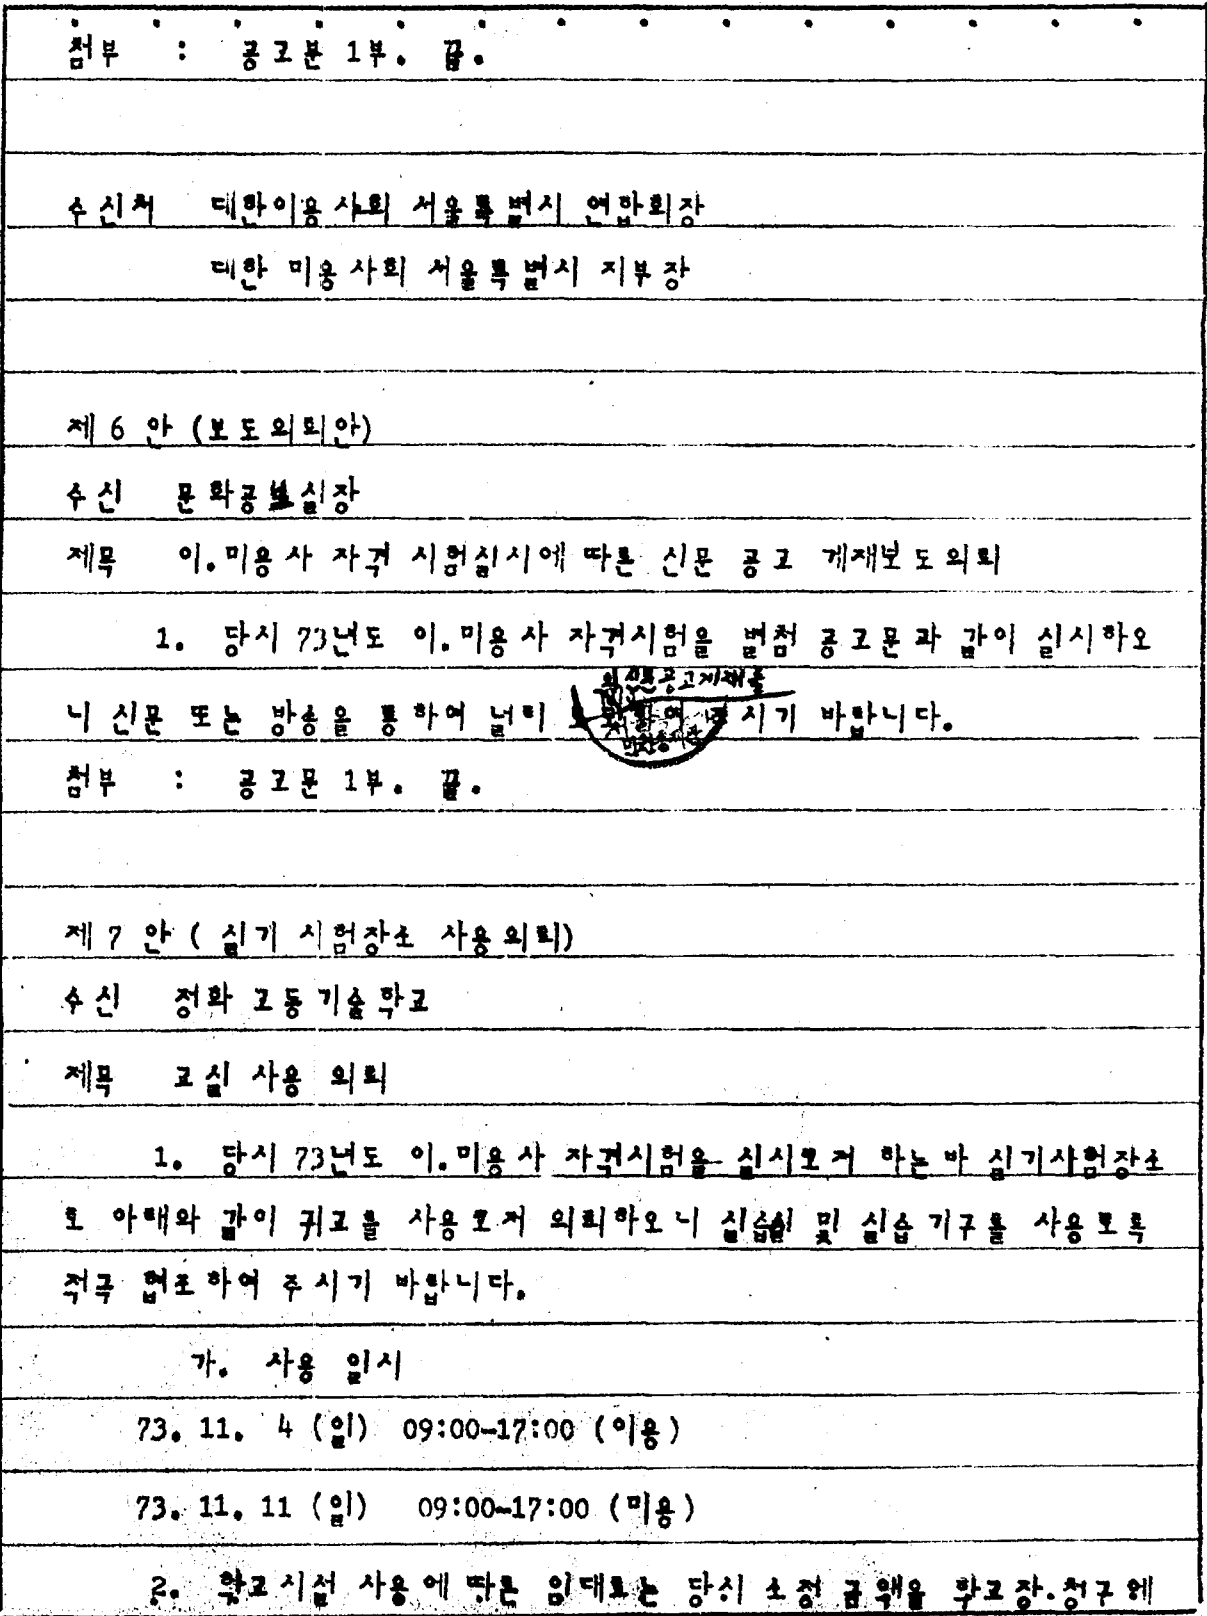 첨부 : 공고문 1부. 끝.
수신처 대한이용사회 서울특별시 연합회장
대한 미용사회 서울특별시 지부장
제 6 안 (보도의뢰안)
수신 문화공보실장
제목 이.미용사 자격 시험실시에 따른 신문 공고 게재보도의뢰
1. 당시 73년도 이.미용사 자격시험을 별첨 공고문과 같이 실시하오
신문공고게재를
니 신문 또는 방송을 통하여 널리 하여 주시기 바랍니다.
첨부 : 공고문 1부. 끝.
제 7 안 ( 실기 시험장소 사용의뢰)
수신 정화 고등기술학교
제목 교실 사용 의뢰
1. 당시 73년도 이.미용사 자격시험을 실시코저 하는바 실기시험장소
로 아래와 같이 귀교를 사용코저 의뢰하오니 실습실 및 실습기구를 사용토록
적극 협조하여 주시기 바랍니다.
가. 사용 일시
73. 11. 4 (일) 09:00-17:00 (이용)
73. 11. 11 (일) 09:00-17:00 (미용)
2. 학교시설 사용에 따른 임대료는 당시 소정 금액을 학교장.청구에